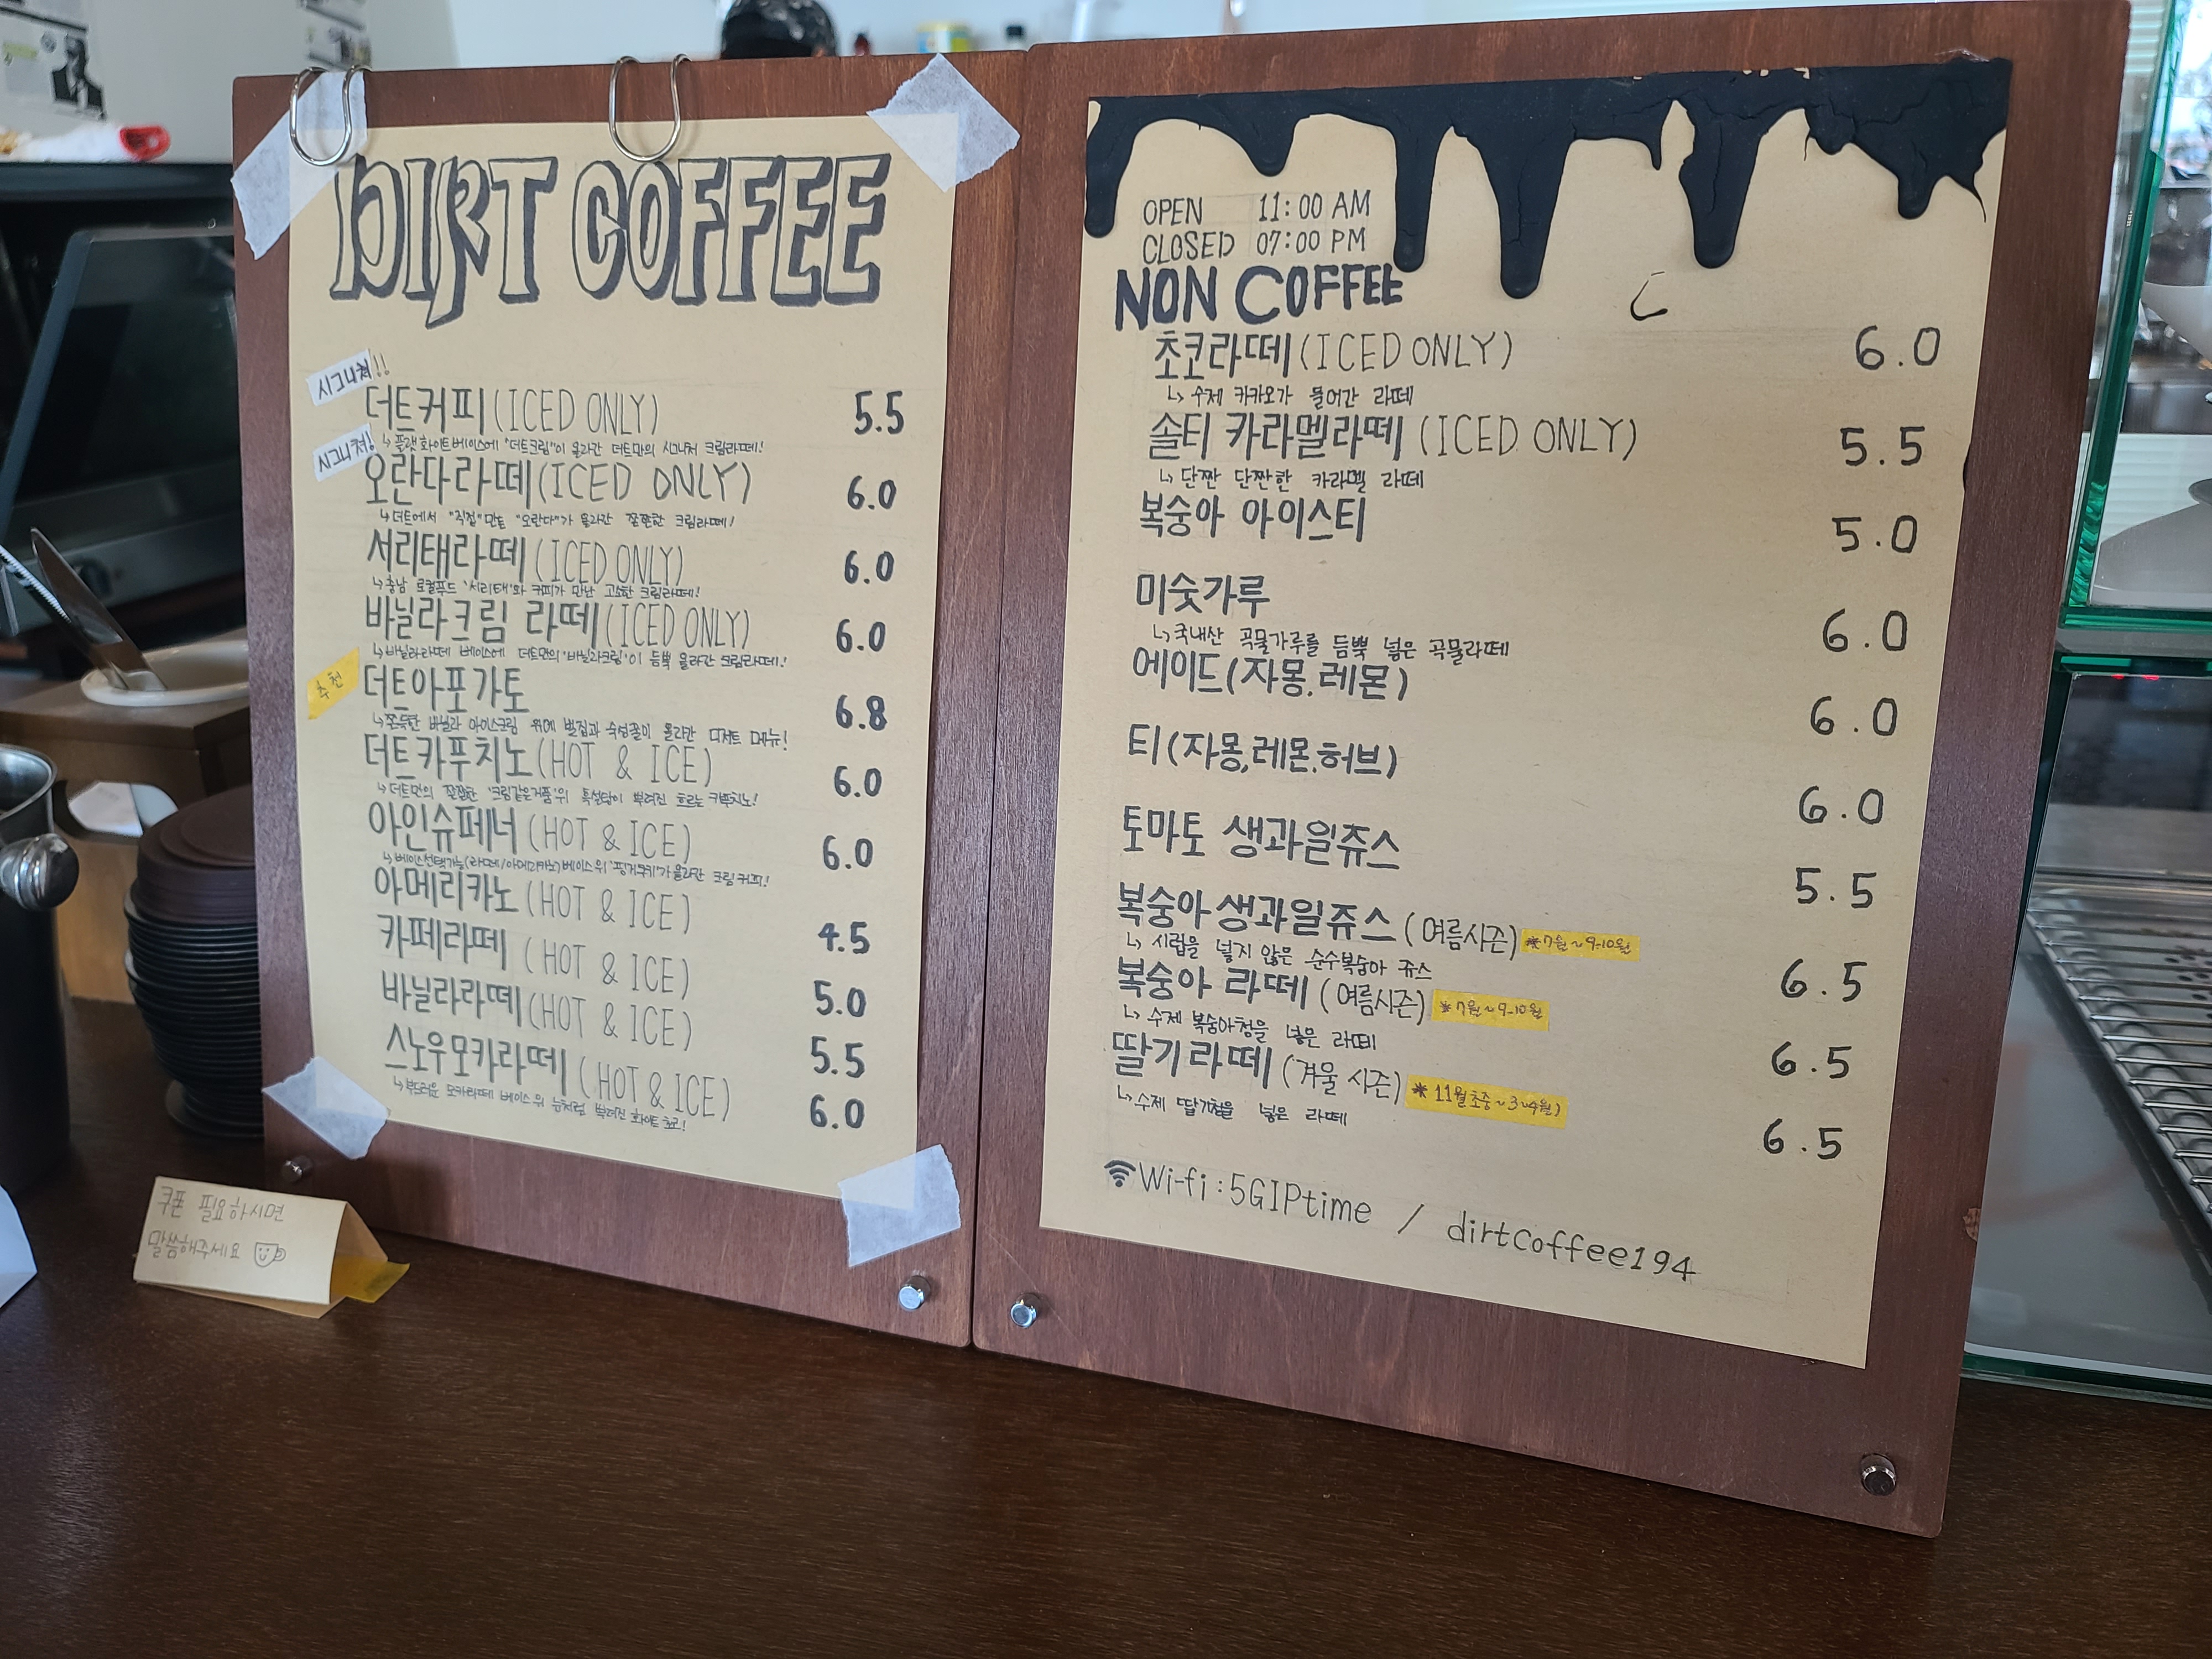 DIRT COFFEE
시그니쳐!!
더트커피(ICED ONLY) 5.5
↳플랫화이트베이스에 "더트크림"이 올라간 더트만의 시그니처 크림라떼!
시그니쳐!
오란다라떼(ICED ONLY) 6.0
↳더트에서 "직접"만든 "오란다"가 올라간 쫀쫀한 크림라떼!
서리태라떼(ICED ONLY) 6.0
↳충남 로컬푸드 '서리태'와 커피가 만난 고소한 크림라떼!
바닐라크림 라떼(ICED ONLY) 6.0
↳바닐라라떼 베이스에 더트만의 '바닐라크림'이 듬뿍 올라간 크림라떼!
추천
더트아포가토 6.8
↳쫀득한 바닐라 아이스크림 위에 벌집과 숙성꿀이 올라간 디저트 메뉴!
더트카푸치노(HOT & ICE) 6.0
↳더트만의 쫀쫀한 '크림같은거품'위 흑설탕이 뿌려진 흐르는 카푸치노!
아인슈페너(HOT & ICE) 6.0
↳베이스선택가능(라떼/아메리카노)베이스위 '핑거쿠키'가 올라간 크림커피!
아메리카노(HOT & ICE) 4.5
카페라떼 (HOT & ICE) 5.0
바닐라라떼(HOT & ICE) 5.5
스노우모카라떼(HOT & ICE) 6.0
↳부드러운 모카라떼 베이스위 눈처럼 뿌려진 화이트초코!
쿠폰 필요하시면
말씀해주세요
OPEN 11:00 AM
CLOSED 07:00 PM
NON COFFEE
초코라떼(ICED ONLY) 6.0
↳수제 카카오가 들어간 라떼
솔티 카라멜라떼 (ICED ONLY) 5.5
↳단짠 단짠한 카라멜 라떼
복숭아 아이스티 5.0
미숫가루 6.0
↳국내산 곡물가루를 듬뿍 넣은 곡물라떼
에이드(자몽.레몬) 6.0
티(자몽,레몬.허브) 6.0
토마토 생과일쥬스 5.5
복숭아생과일쥬스(여름시즌) *7월~9-10월 6.5
↳시럽을 넣지 않은 순수복숭아 쥬스
복숭아 라떼(여름시즌) *7월~9-10월 6.5
↳수제 복숭아청을 넣은 라떼
딸기라떼(겨울 시즌) *11월초중~3~4월) 6.5
↳수제 딸기청을 넣은 라떼
Wi-fi:5GIPtime / dirtcoffee194